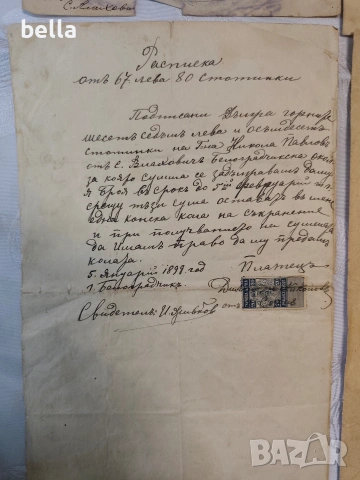 bella
Расписка
отъ 67 лева 80 стотинки
Подписани Димитра горниѣ
шесетъ седемь лева и осъмдесетъ
стотинки на Г-на Никола Павловъ
отъ с. Влаховичъ белоградчикска околия
за която сумма се задължавамъ да му
я броя въ срокъ до 5ий февруарий т.г.
срещу тази сума оставатъ въ мене
една конска кола на съхранение
и при получванието на сумата
да имамъ право да му предамъ
колата.
5. Януарий 1899 год
г. Белоградчикъ.
Платецъ
Свидетель: И.
BAZAR.BG